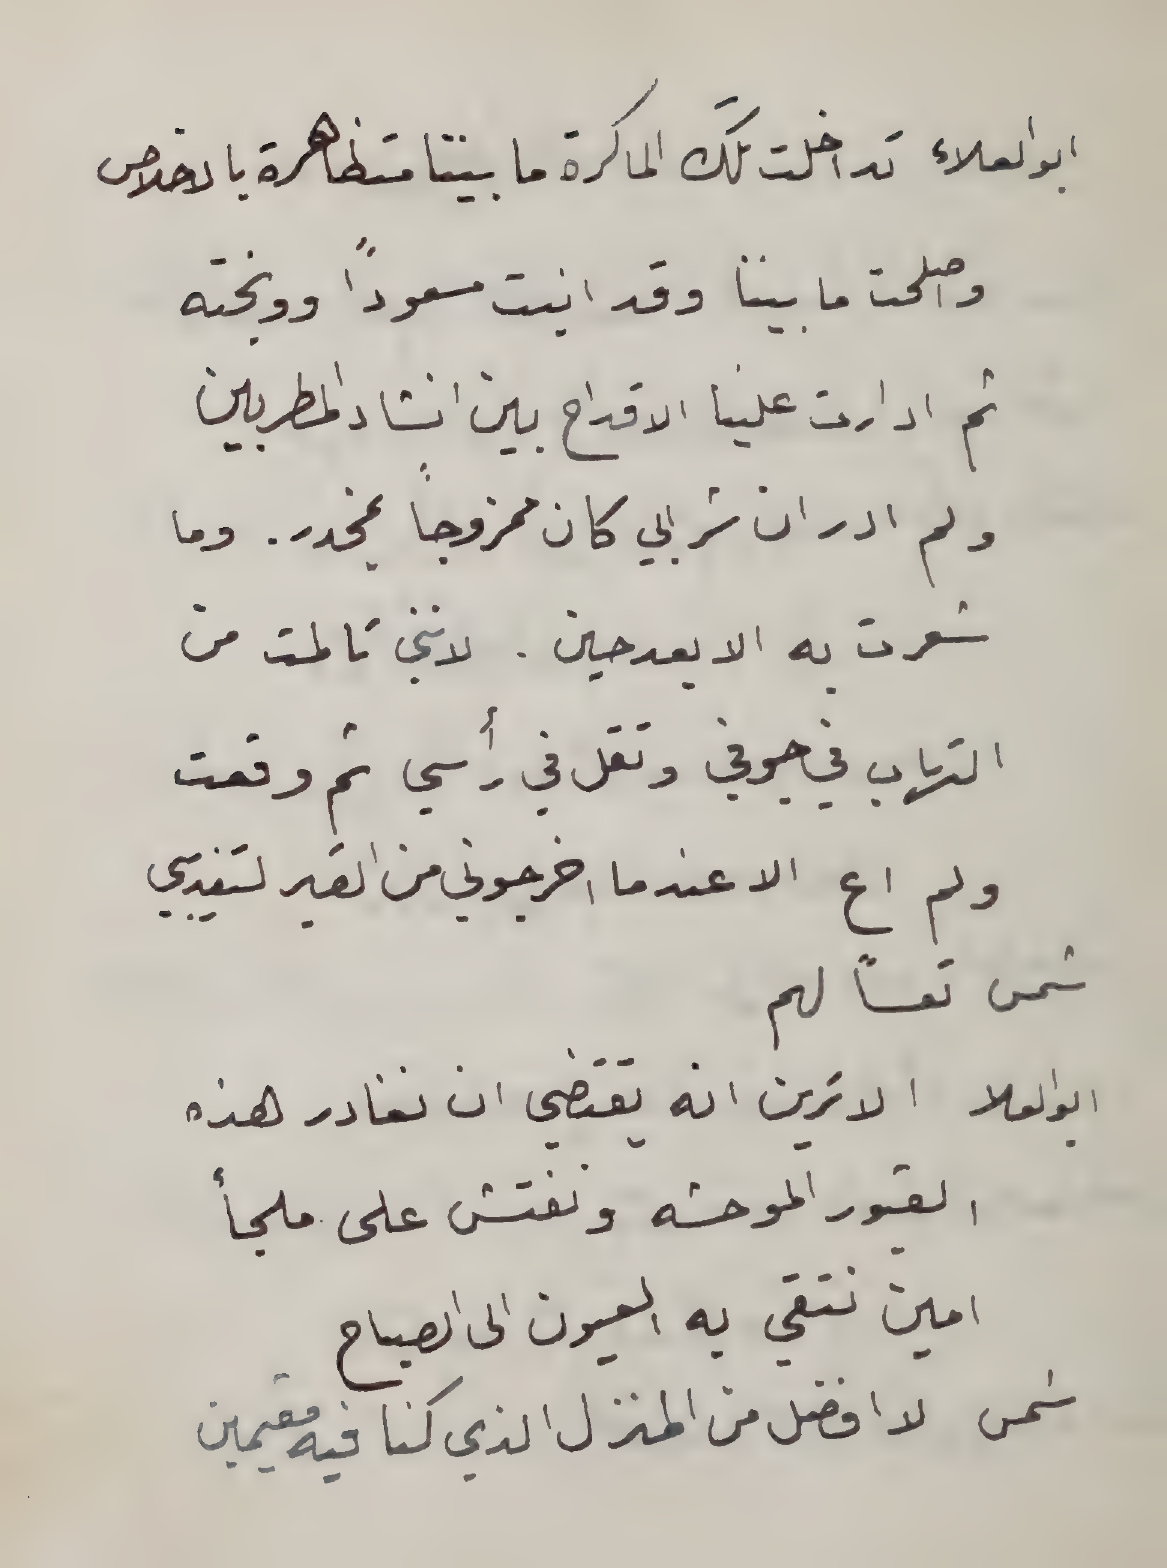 ابو العلاء تداخلت تلك الماكرة ما بيننا متظاهرة بالاخلاص
واصلحت ما بيننا وقد انبت مسعوداً ووبخته
ثم ادارت علينا الاقداح بين انشاد المطربين
ولم ادر ان شرابي كان ممزوجاً بمخدر. وما
شعرت به الا بعد حين. لانني تالمت من
التهاب في جوفي وثقل في رأسي ثم وقعت
ولم اع الا عندما اخرجوني من القبر لتفتديني
شمس تعساً لهم
ابو العلا الا ترين انه يقتضي ان نغادر هذه
القبور الموحشه ونفتش على ملجأ
امين نتقي به العيون الى الصباح
شمس لا افضل من المنزل الذي كنا فيه مقيمين